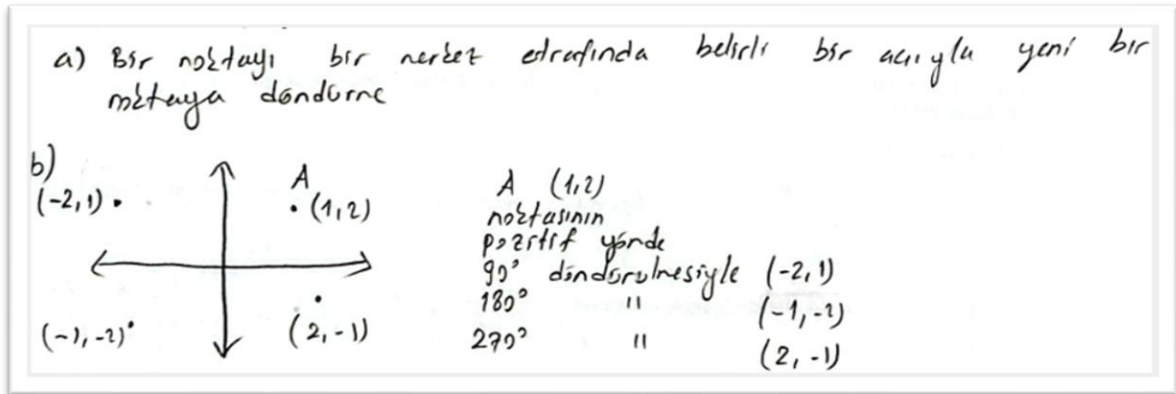 a) Bir noktayı bir merkez etrafında belirli bir açıyla yeni bir
noktaya döndürme
b)
(-2,1)
A
(1,2)
(-1,-2)
(2,-1)
A (1,2)
noktasının
pozitif yönde
90° döndürülmesiyle (-2,1)
180° " (-1,-2)
270° " (2,-1)